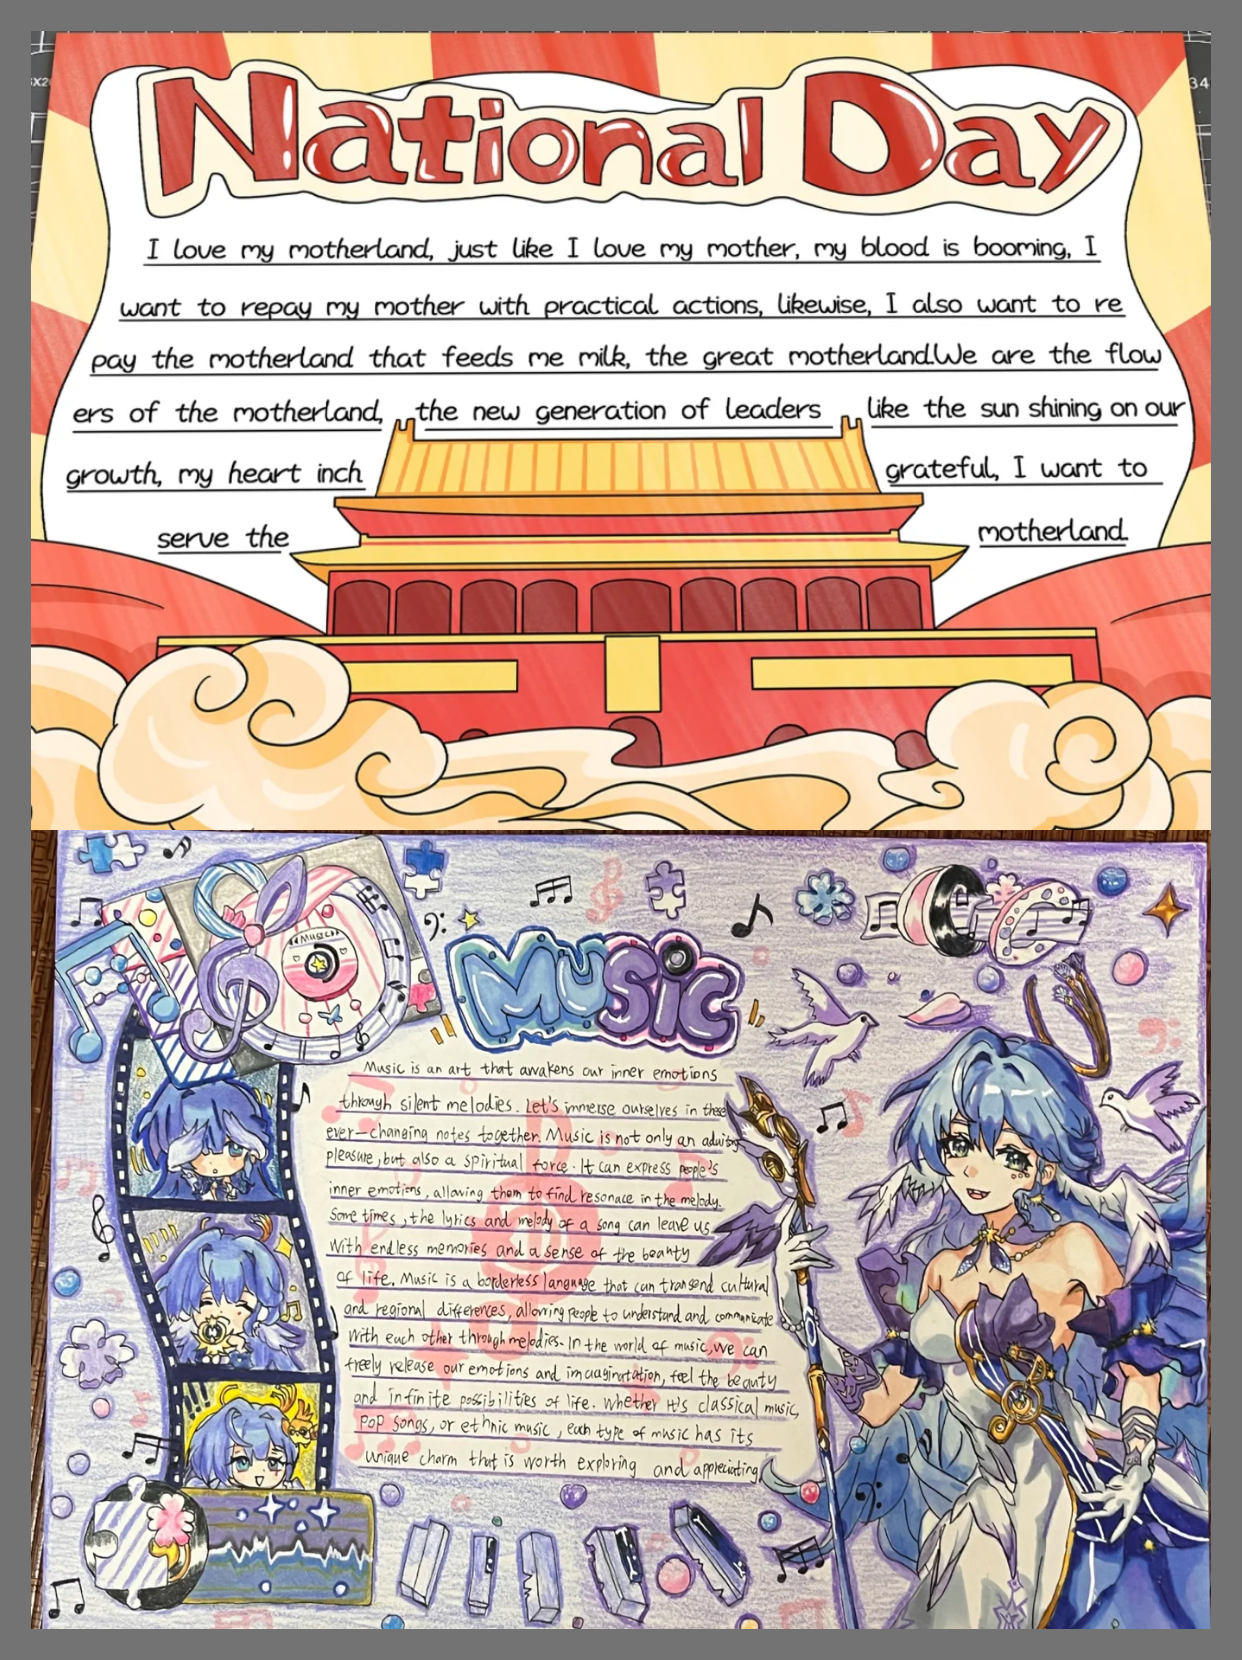 National Day
I love my motherland, just like I love my mother, my blood is booming, I
want to repay my mother with practical actions, likewise, I also want to re
pay the motherland that feeds me milk, the great motherland.We are the flow
ers of the motherland, the new generation of leaders like the sun shining on our
growth, my heart inch grateful, I want to
serve the motherland.
MUSIC
MUSIC
Music is an art that awakens our inner emotions
through silent melodies. Let's immerse ourselves in these
ever-changing notes together. Music is not only an
pleasure, but also a spiritual force. It can express people's
inner emotions, allowing them to find resonace in the melody.
Some times, the lyrics and melody of a song can leave us
With endless memories and a sense of the beauty
of life. Music is a borderless language that can transend cultural
and regional differences, allowing people to understand and communicate
With each other through melodies. In the world of music, we can
freely release our emotions and imauginatation, feel the beauty
and infinite possibilities of life. Whether it's classical music,
pop songs, or ethnic music, each type of music has its
unique charm that is worth exploring and appreciating